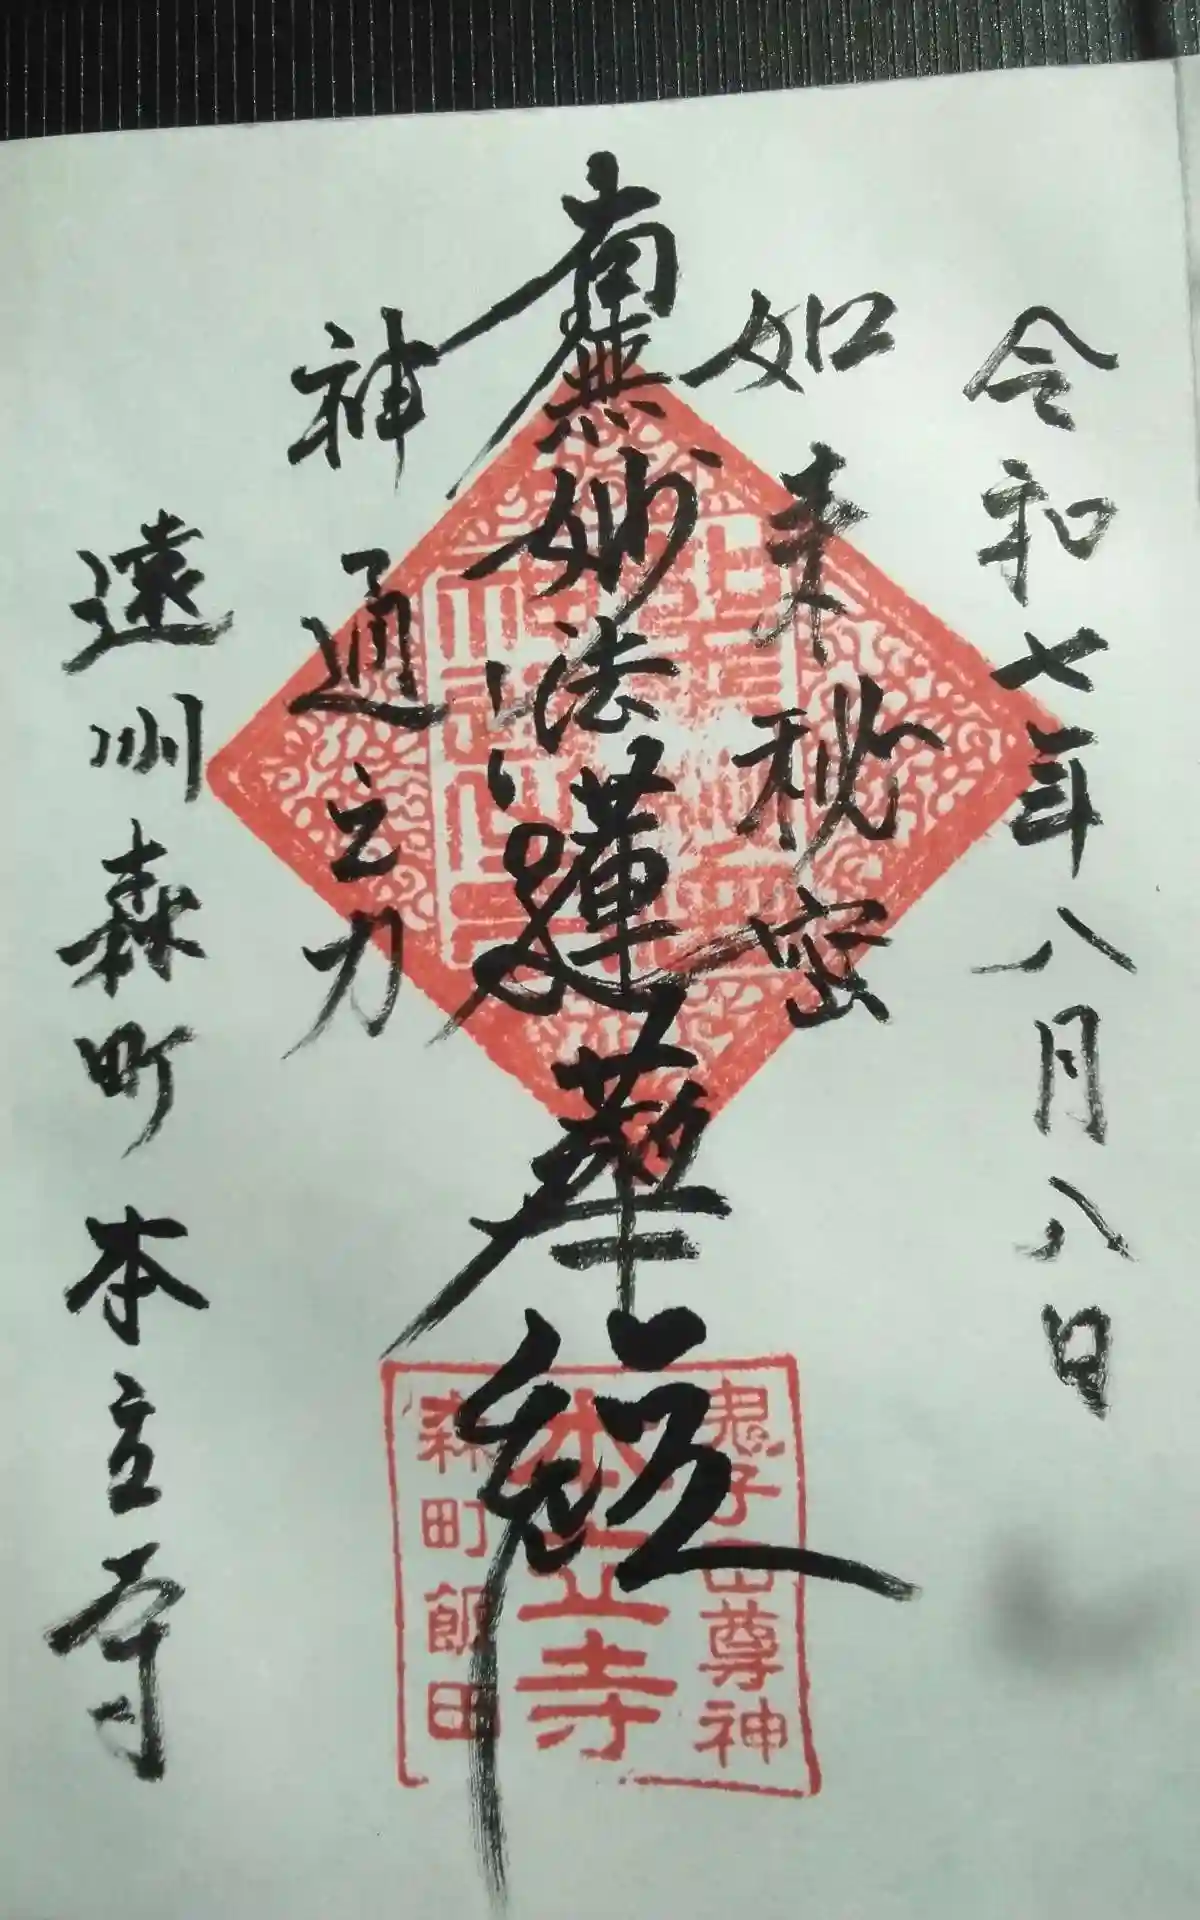 令和七年八月八日
如来秘密
南無妙法蓮華経
神通之力
遠州森町本立寺
鬼子母尊神
本立寺
森町飯田